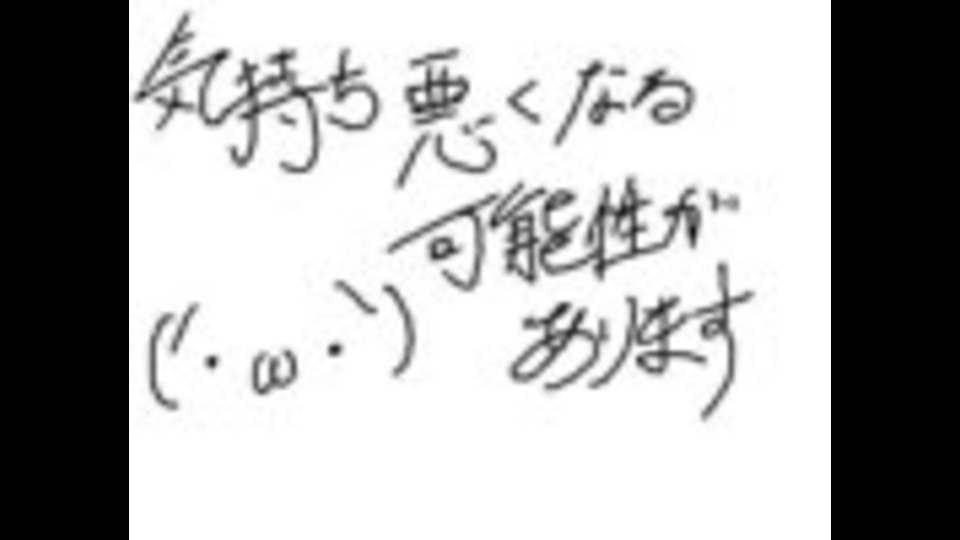 気持ち悪くなる
可能性が
あります
(´・ω・`)